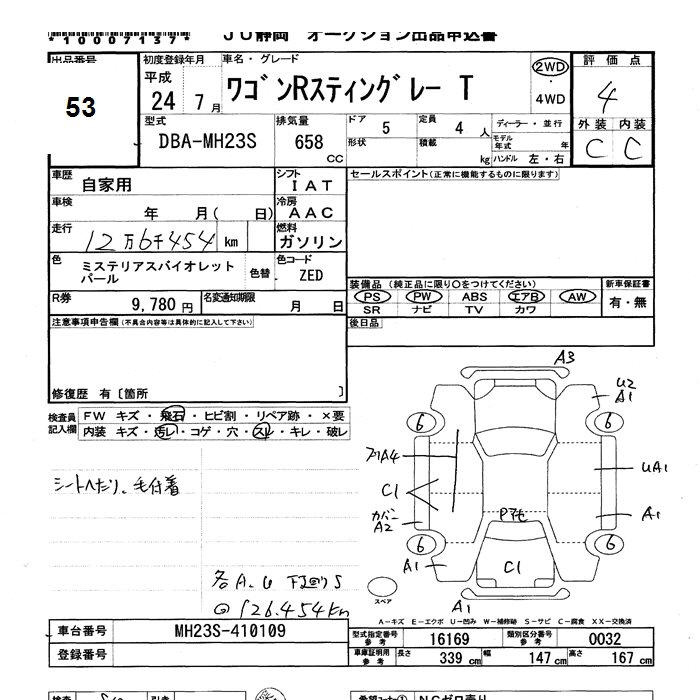 *10007137* JU静岡 オークション出品申込書
出品番号 初度登録年月 車名・グレード 評価点
53
平成 24 7月 ワゴンRスティングレー T 2WD ・ 4WD 4
型式 排気量 ドア 5 定員 4人 ディーラー・並行 外装 内装
DBA-MH23S 658 CC 形状 積載 kg モデル年式 年 C C
ハンドル 左・右
車歴 自家用 シフト IAT セールスポイント(正常に機能するものに限ります)
車検 年 月( 日) 冷房 AAC
走行 12万6千454 km 燃料 ガソリン
色 ミステリアスバイオレットパール 色替 色コード ZED
装備品(純正品に限り○をつけてください) 新車保証書
R券 9,780円 名変通知期限 月 日 PS PW ABS エアB AW 有・無
SR ナビ TV カワ
注意事項申告欄(不具合内容等は具体的に記入して下さい) 後日品
修復歴 有〔箇所 〕
検査員記入欄 FW キズ・飛石・ヒビ割・リペア跡・×要
内装 キズ・汚レ・コゲ・穴・スレ・キレ・破レ
A3
U2
A1
6 6
A4
UA1
シートへたり、毛付着
C1
カバー
A2
A1
6 6
A1
C1
各A、U 下回りS
@126.454km
スペア
A1
A-キズ E-エクボ U-凹み W-補修跡 S-サビ C-腐食 XX-交換済
車台番号 MH23S-410109 型式指定番号 参考 16169 類別区分番号 参考 0032
登録番号 車庫証明用 参考 長さ 339 cm 幅 147 cm 高さ 167 cm
検査 希望コーナー① NCゼロ売り